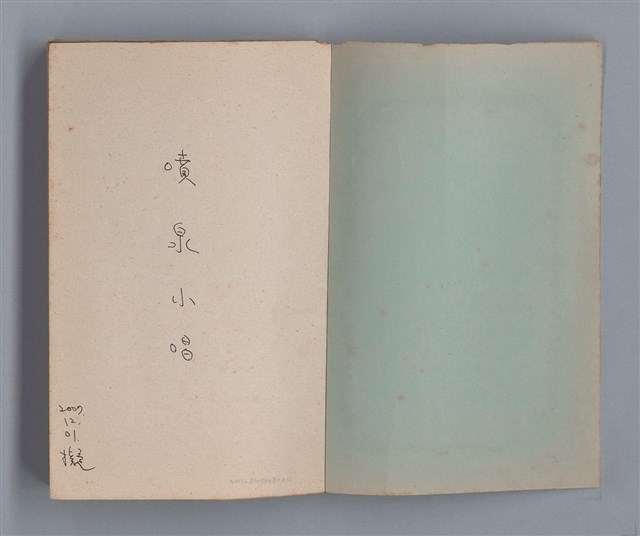 噴泉小唱
2007.
12.
01.
擬